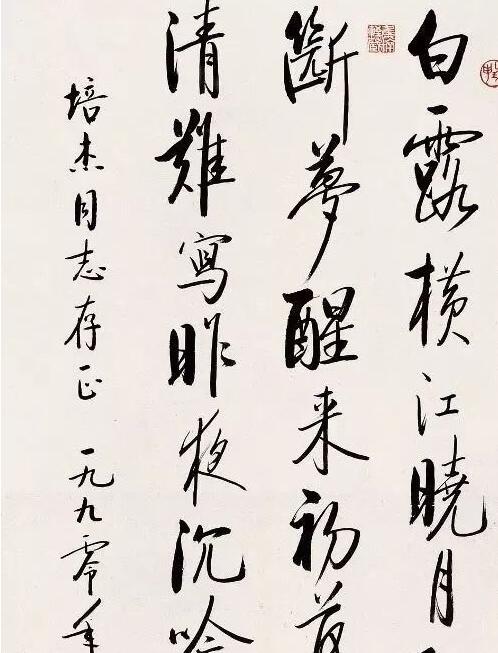 白露横江曉月
斷夢醒来初
清難寫昨夜沉吟
培杰同志存正 一九九零年